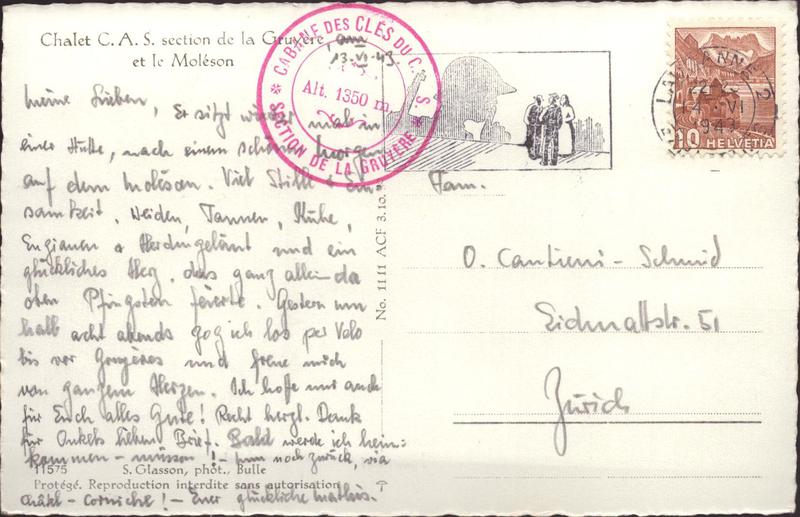 Chalet C. A. S. section de la Gruyère
et le Moléson
am
13.VI.43.
CABANE DES CLÉS DU C. A. S.
Alt. 1350 m.
SECTION DE LA GRUYÈRE
LAUSANNE 2
VI
1943
10 HELVETIA
Meine Lieben, Er sitzt wieder mal in
einer Hütte, nach einem schönen Morgen
auf dem Moléson. Viel Stille & Ein-
samkeit. Weiden, Tannen, Kühe,
Enzianen & Herdengeläut und ein
glückliches Herz, das ganz allein da
oben Pfingsten feierte. Gestern um
halb acht abends zog ich los per Velo
bis vor Gruyères und freue mich
von ganzem Herzen. Ich hoffe nur auch
für Euch alles Gute! Recht herzl. Dank
für Onkels lieben Brief. Bald werde ich heim-
kommen – müssen! – nun noch zurück, via
Châtel - Corniche! – Euer glücklicher Mathis.
11575 S. Glasson, phot., Bulle
Protégé. Reproduction interdite sans autorisation
No. 1111 ACF 3.10.
Fam.
O. Cantieni - Schmid
Eidmattstr. 51
Zürich